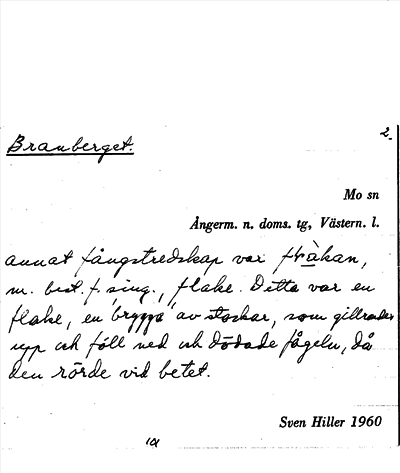 2.
Branberget.
Mo sn
Ångerm. n. doms. tg, Västern. l.
annat fångstredskap var flàkan,
m. best. f. sing., flake. Detta var en
flake, en "brygga" av stockar, som gillrades
upp och föll ned och dödade fågeln, då
den rörde vid betet.
Sven Hiller 1960